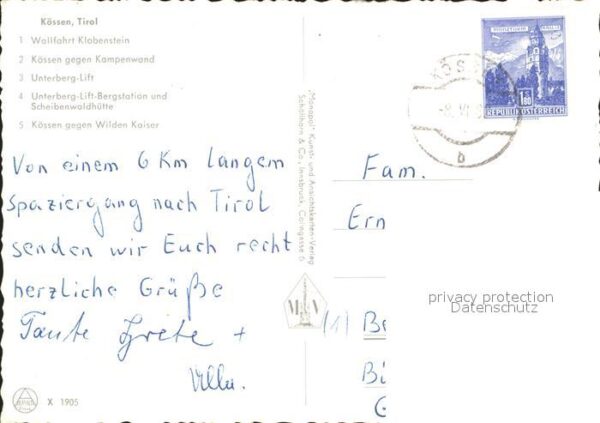 Kössen, Tirol
1 Wallfahrt Klobenstein
2 Kössen gegen Kampenwand
3 Unterberg-Lift
4 Unterberg-Lift-Bergstation und
Scheibenwaldhütte
5 Kössen gegen Wilden Kaiser
Von einem 6 Km langem
Spaziergang nach Tirol
senden wir Euch recht
herzliche Grüße
Tante Grete +
X 1905
„Monopol" Kunst- und Ansichtskarten-Verlag
Schöllhorn & Co., Innsbruck, Colingasse 5
1.80
REPUBLIK ÖSTERREICH
b
Fam.
Ern
(1) Be
Bi
G
privacy protection
Datenschutz